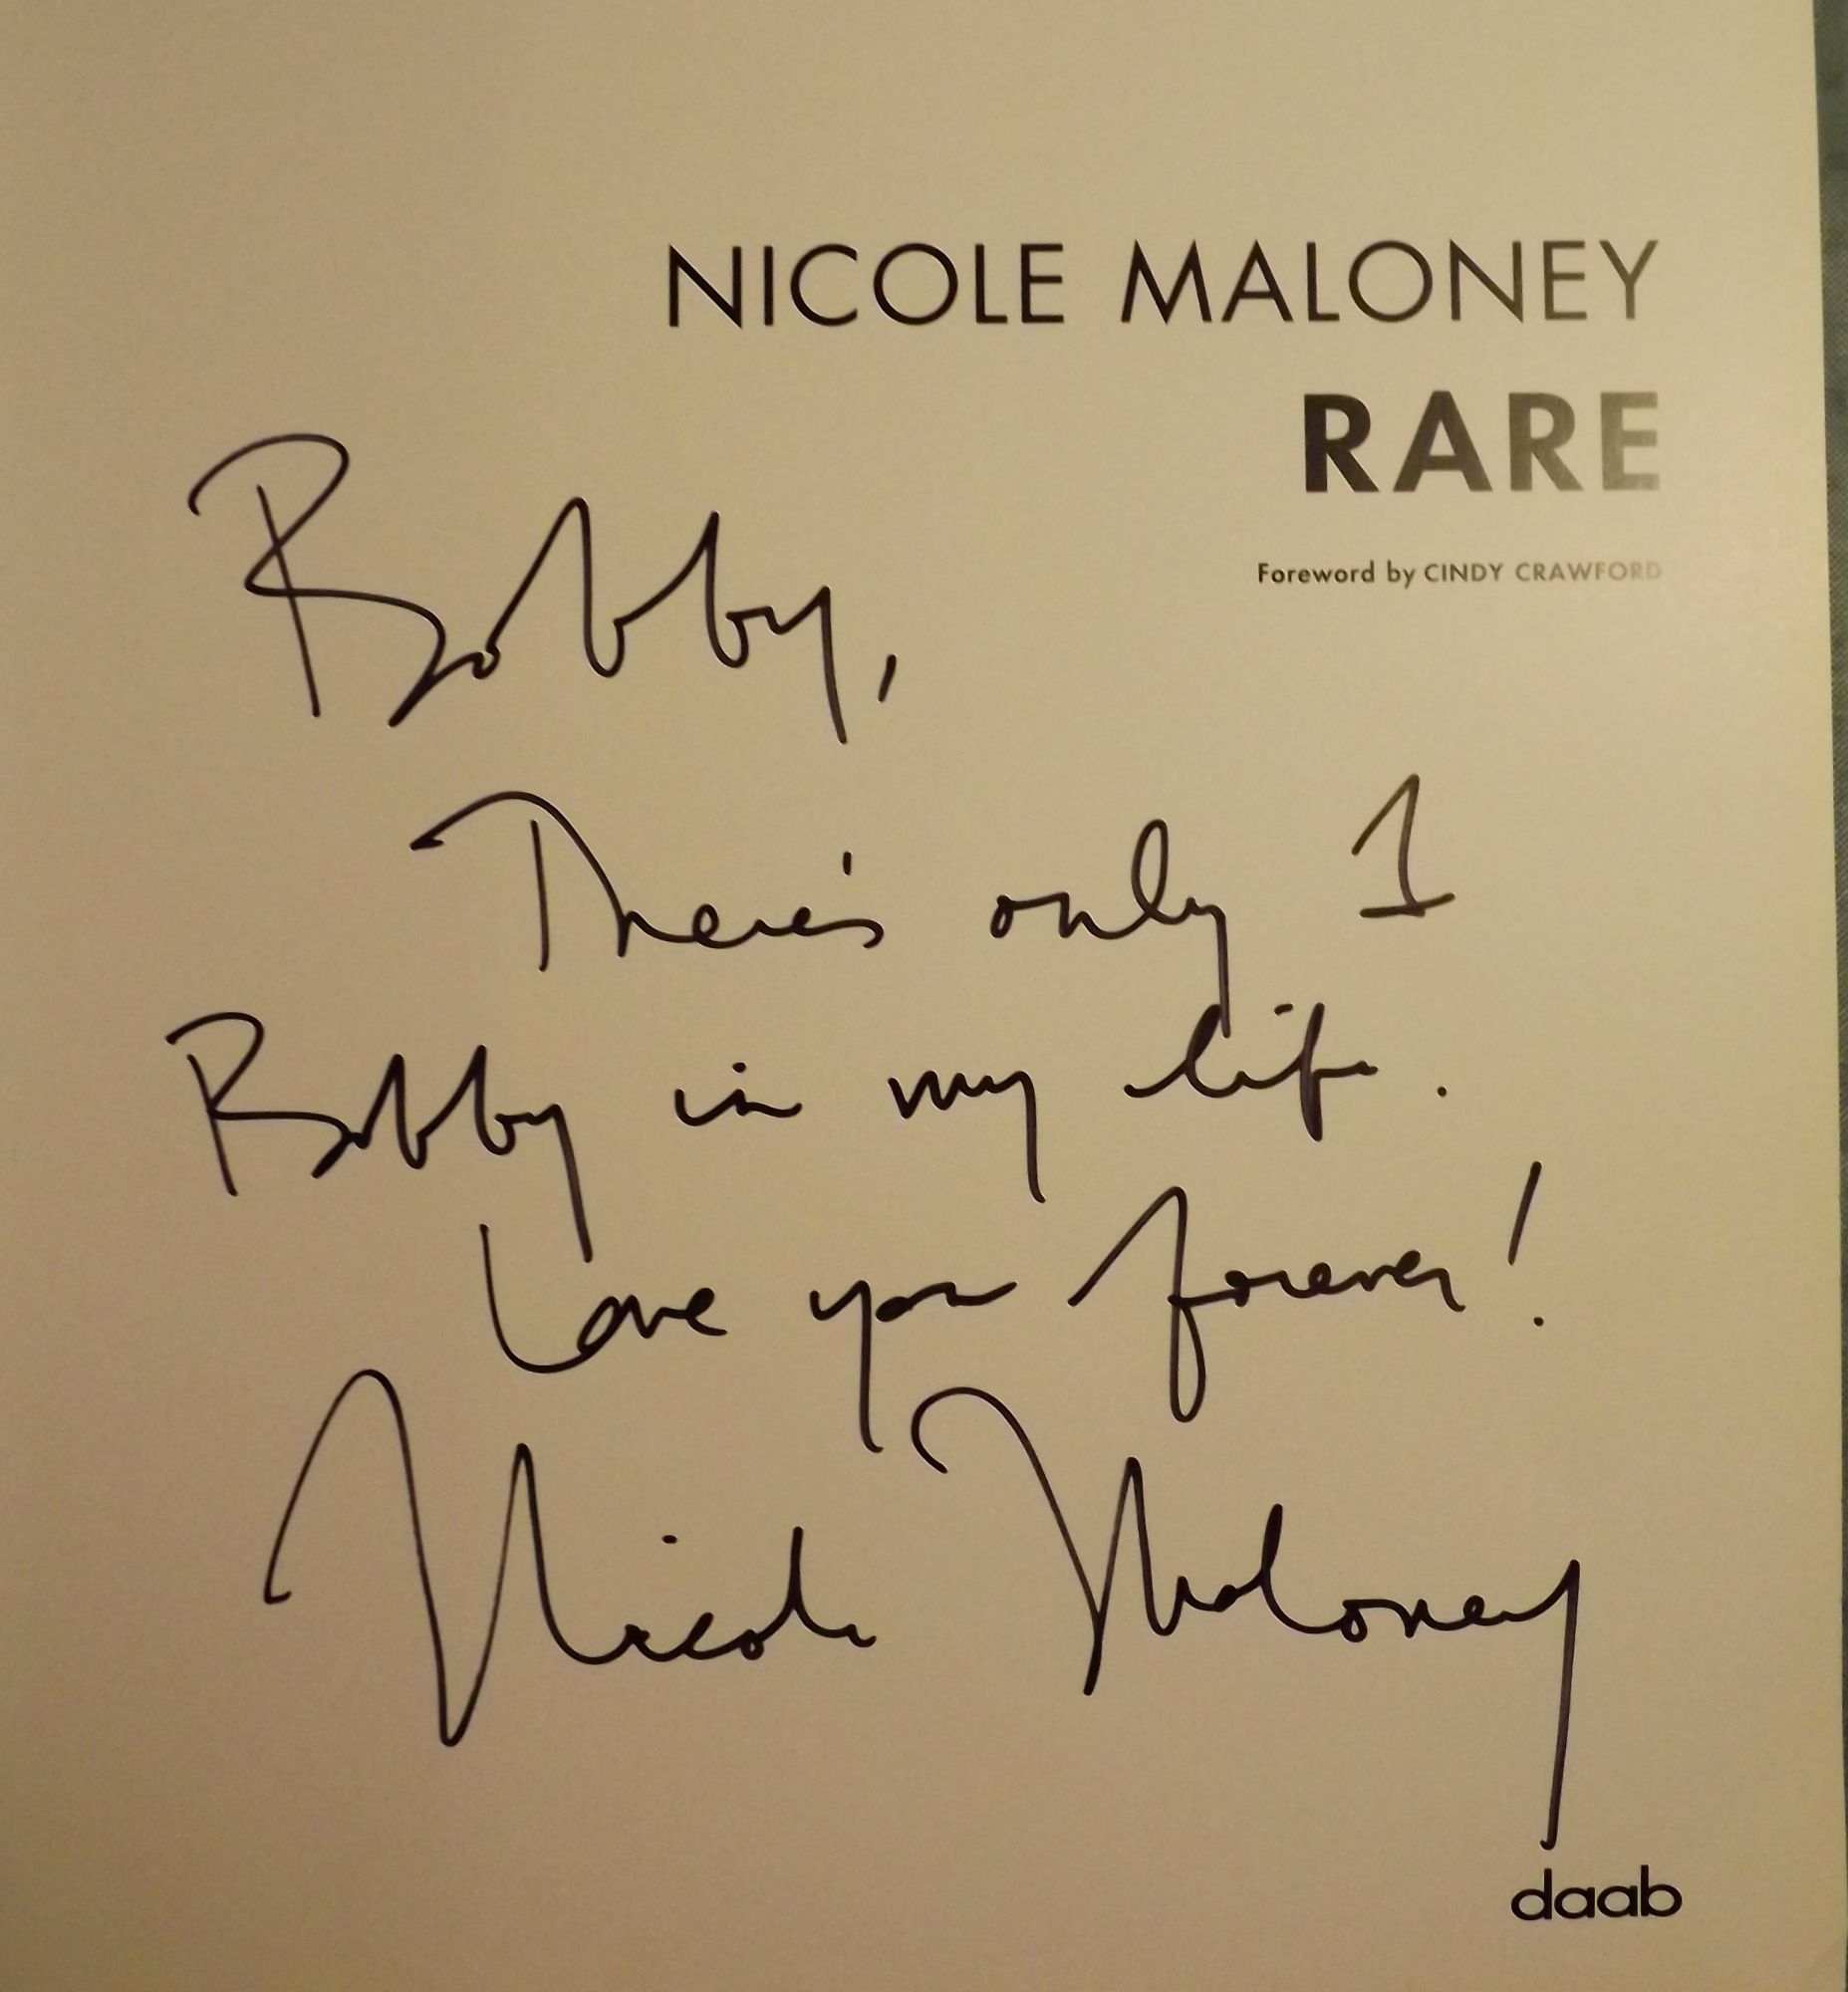 NICOLE MALONEY
RARE
Foreword by CINDY CRAWFORD
Bobby,
There's only 1
Bobby in my life.
Love you forever!
Nicole Maloney
daab